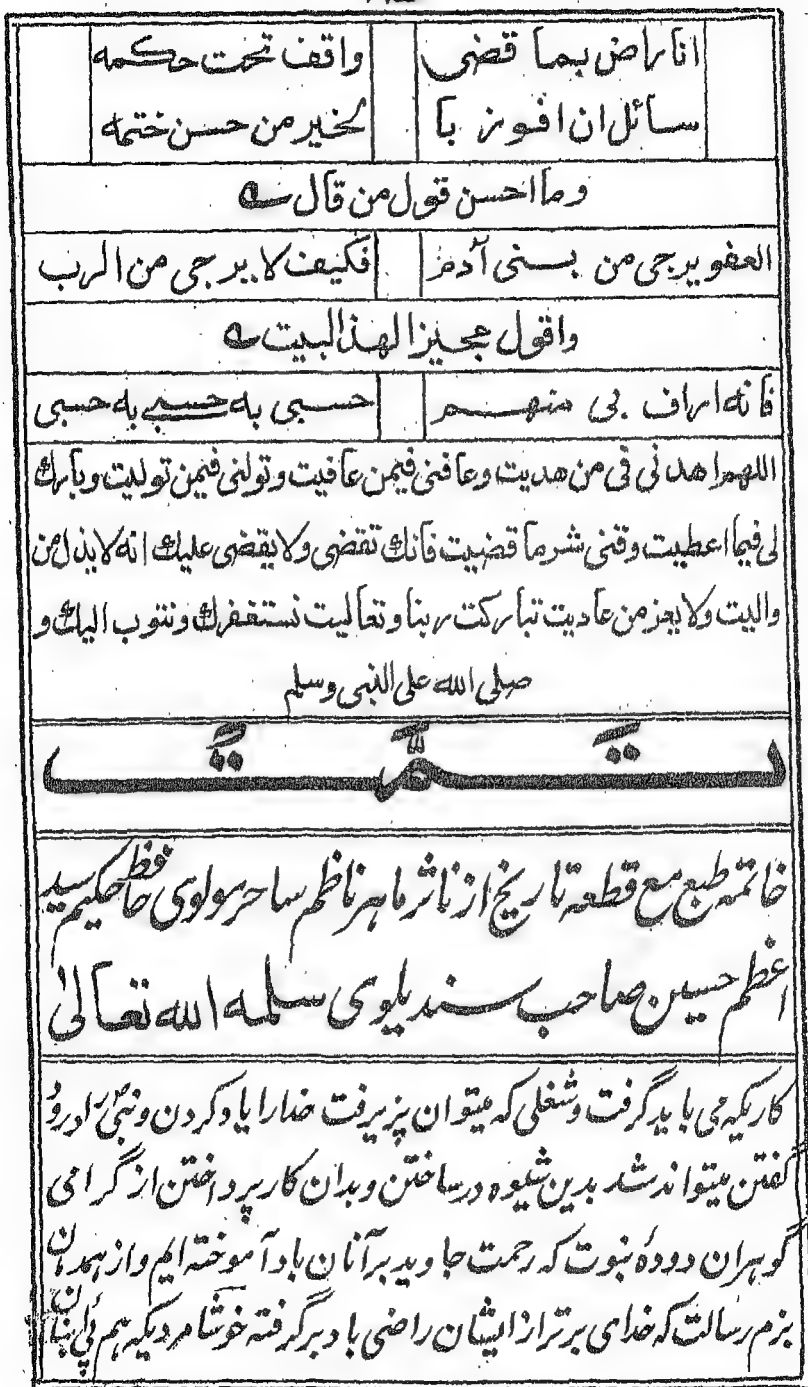 انا راض بما قضى واقف تحت حكمه
سائل ان افوز با لخير من حسن ختمه
وما احسن قول من قال ؎
العفو يرجى من بنى آدم فكيف لا يرجى من الرب
واقول مجيزا لهذا البيت ؎
فانه اراف بى منهم حسبى به حسبى به حسبى
اللهم اهدنى فى من هديت وعافنى فيمن عافيت وتولنى فيمن توليت وبارك
لى فيما اعطيت وقنى شر ما قضيت فانك تقضى ولا يقضى عليك انه لا يذل من
واليت ولا يعز من عاديت تباركت ربنا وتعاليت نستغفرك ونتوب اليك و
صلى الله على النبى وسلم
تَمَّتْ
خاتمه طبع مع قطعه تاریخ از ناثر ماهر ناظم ساحر مولوی حافظ حکیم سید
اعظم حسین صاحب سندیلوی سلمه الله تعالیٰ
کاریکه می باید گرفت و شغلی که میتوان پزیرفت خدارا یاد کردن و نبیؐ را درود
گفتن میتواند شد بدین شیوه درساختن و بدان کار پرداختن از گرامی
گوهران دودۀ نبوت که رحمت جاوید بر آنان باد آموخته ایم و از همدمان
بزم رسالت که خدای برتر از ایشان راضی باد برگرفته خوشا مردیکه هم پی اینان